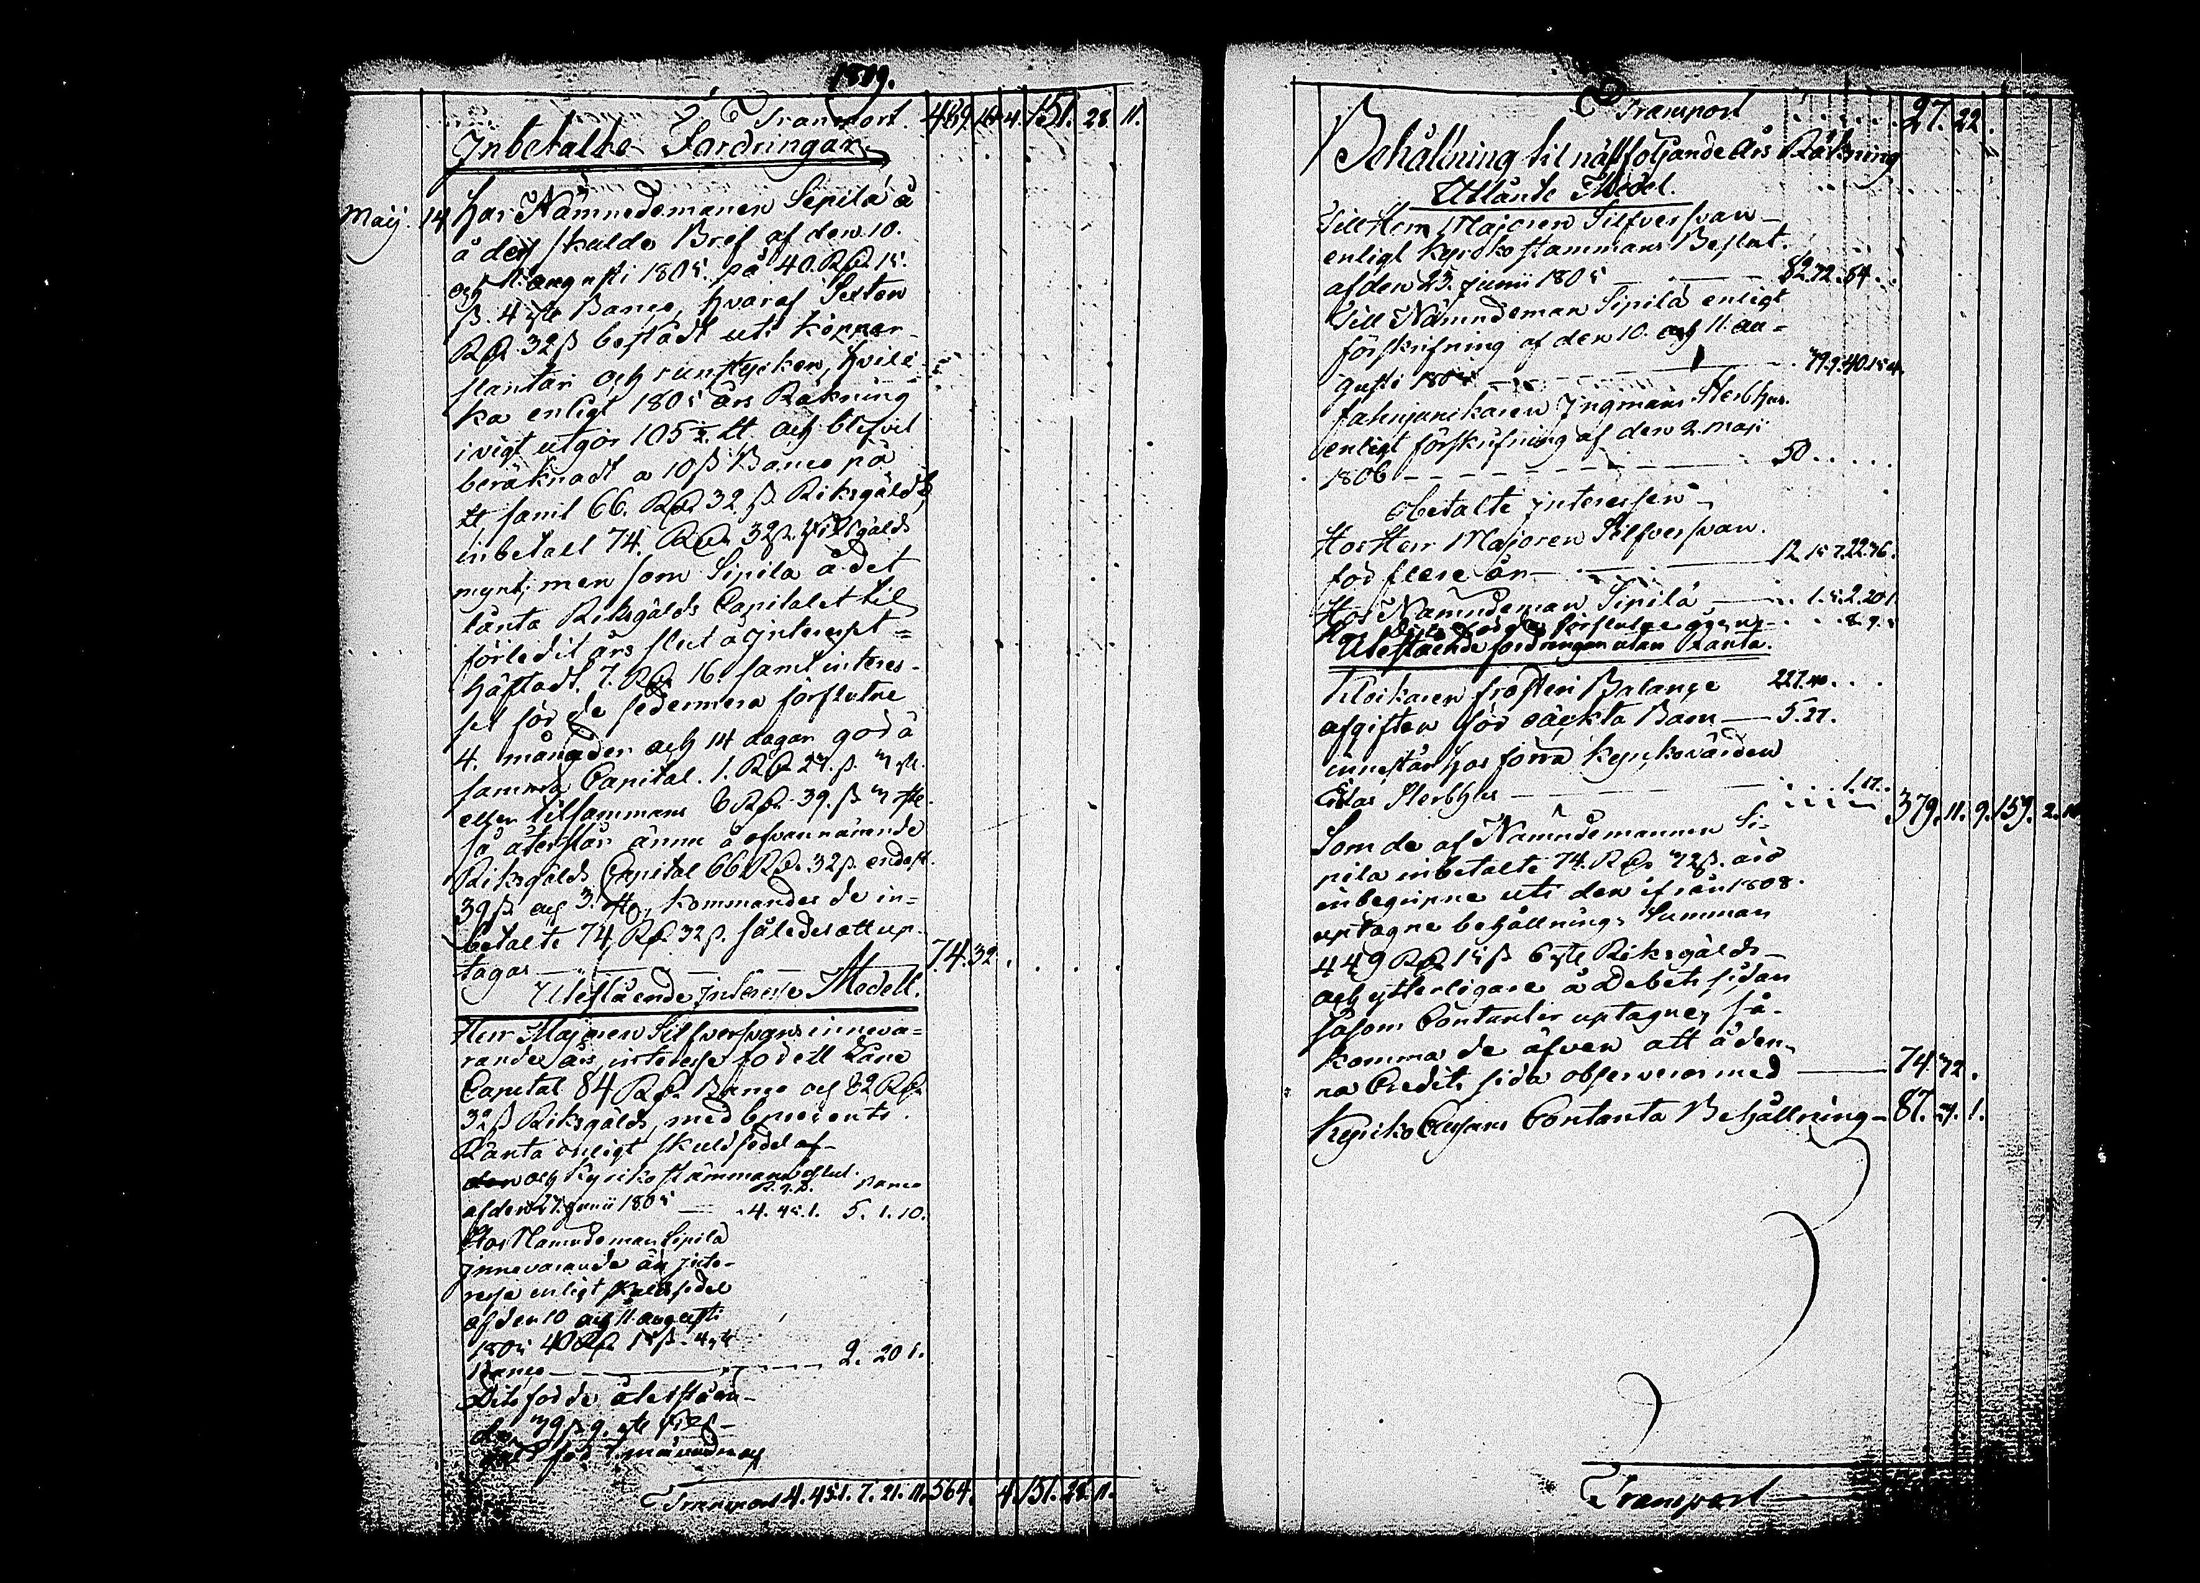 1809.
Transport. 489. 16. 4. 151. 28. 11.
Inbetalte Fordringar
Maij. 14 har Nämndemanen Sipilä å
å dess skulde Bref af den 10.
och 11 augusti 1805. på 40. Rd 15.
ß. 4 rst Banco, hvaraf Sexton
Rd 32 ß bestådt uti koppar
slantar och runstycken, hvil-
ka enligt 1805 års Räkning
i vigt utgör 105 ½ lt och blifvit
beräknadt a 10 ß Banco på
lt samt 66. Rd 32 ß Riksgälds
inbetalt 74. Rd 32 ß. Riksgälds
mynt; men som Sipilä å det
lånta Riksgälds Capitalet til
förledit års slut a interesse
häftadt. 7. Rd 16. samt interes-
se för de sedermera förflutne
4. månader och 14 dagar god å
samma Capital. 1. Rd 27. ß.
eller tilsammans 8 Rd 39. ß
så återstår ännu å ofvannämnde
Riksgälds Capital 66 Rd. 32 ß. endast
39 ß och 3. rst, kommandes de in-
betalte 74 Rd 32 ß. således att up-
tagas 74. 32. .
Utestående Interesse Medel.
Herr Majoren Silfversvans inneva-
rande års interesse för ett Låne
Capital 84 Rd Banco och 82 Rd
32 ß Riksgälds, med 6 procents
Ränta enligt skuldsedel af
den och Kyrkostämmans beslut.
R.g.d. Banco
af den 27. Junii 1805 4. 45. 1. 5. 1. 10.
Hos Nämndeman Sipilä
innevarande års inte-
resse enligt skuldsedel
af den 10 och 11 augusti
1805 40 Rd 15 ß. 4 rst
Banco 2. 20 1.
Dito för de återståen-
de 39 ß 9. rst Riks-
gäld för månader och
Transport 4. 45 1. 7. 21. 11. 564. 4. 151. 28. 11.
Transport 27. 22.
Behållning til nästföljande års Räkning
Utlånte Medel.
Till Herr Majoren Silfversvan
enligt Kyrko stammans Beslut.
af den 23. junii 1805 82. 32. 84. . .
Till Nämndeman Sipilä enligt
förskrifning af den 10. och 11. au-
gusti 1805 39. 9. 40. 15. 4.
Fahnjunkaren Ingmans Sterbhus.
enligt förskrifning af den 2. maji
1806 50. . . . .
Obetalte interessen
Hos Herr Majoren Silfversvan.
för flere år 12 15 7. 22. 36.
Hos Nämndeman Sipilä 1. 5. 2. 20 1.
Utestående fordringar utan Ränta.
Klockaren Frosteri Balance 227. 40. . .
afgiften för oäckta Barn 5. 27.
innestår hos förra Kyrkovärden
Eskos Sterbhus 1. 17. .
379. 11. 9. 159. 2. 10
Som de af Nämndemannen Si-
pila inbetalte 74. Rd 32 ß. äro
inbegripne uti den ifrån 1808.
uptagne behållnings Summan
449 Rd 15 ß 6 rst Riksgälds
och ytterligare å Debets sidan
såsom Contanter uptagne, så
komma de äfven att å den-
na Credits sida observeras med 74. 32.
Kyrko Cassans Contanta Behållning 87. 1.
Transport